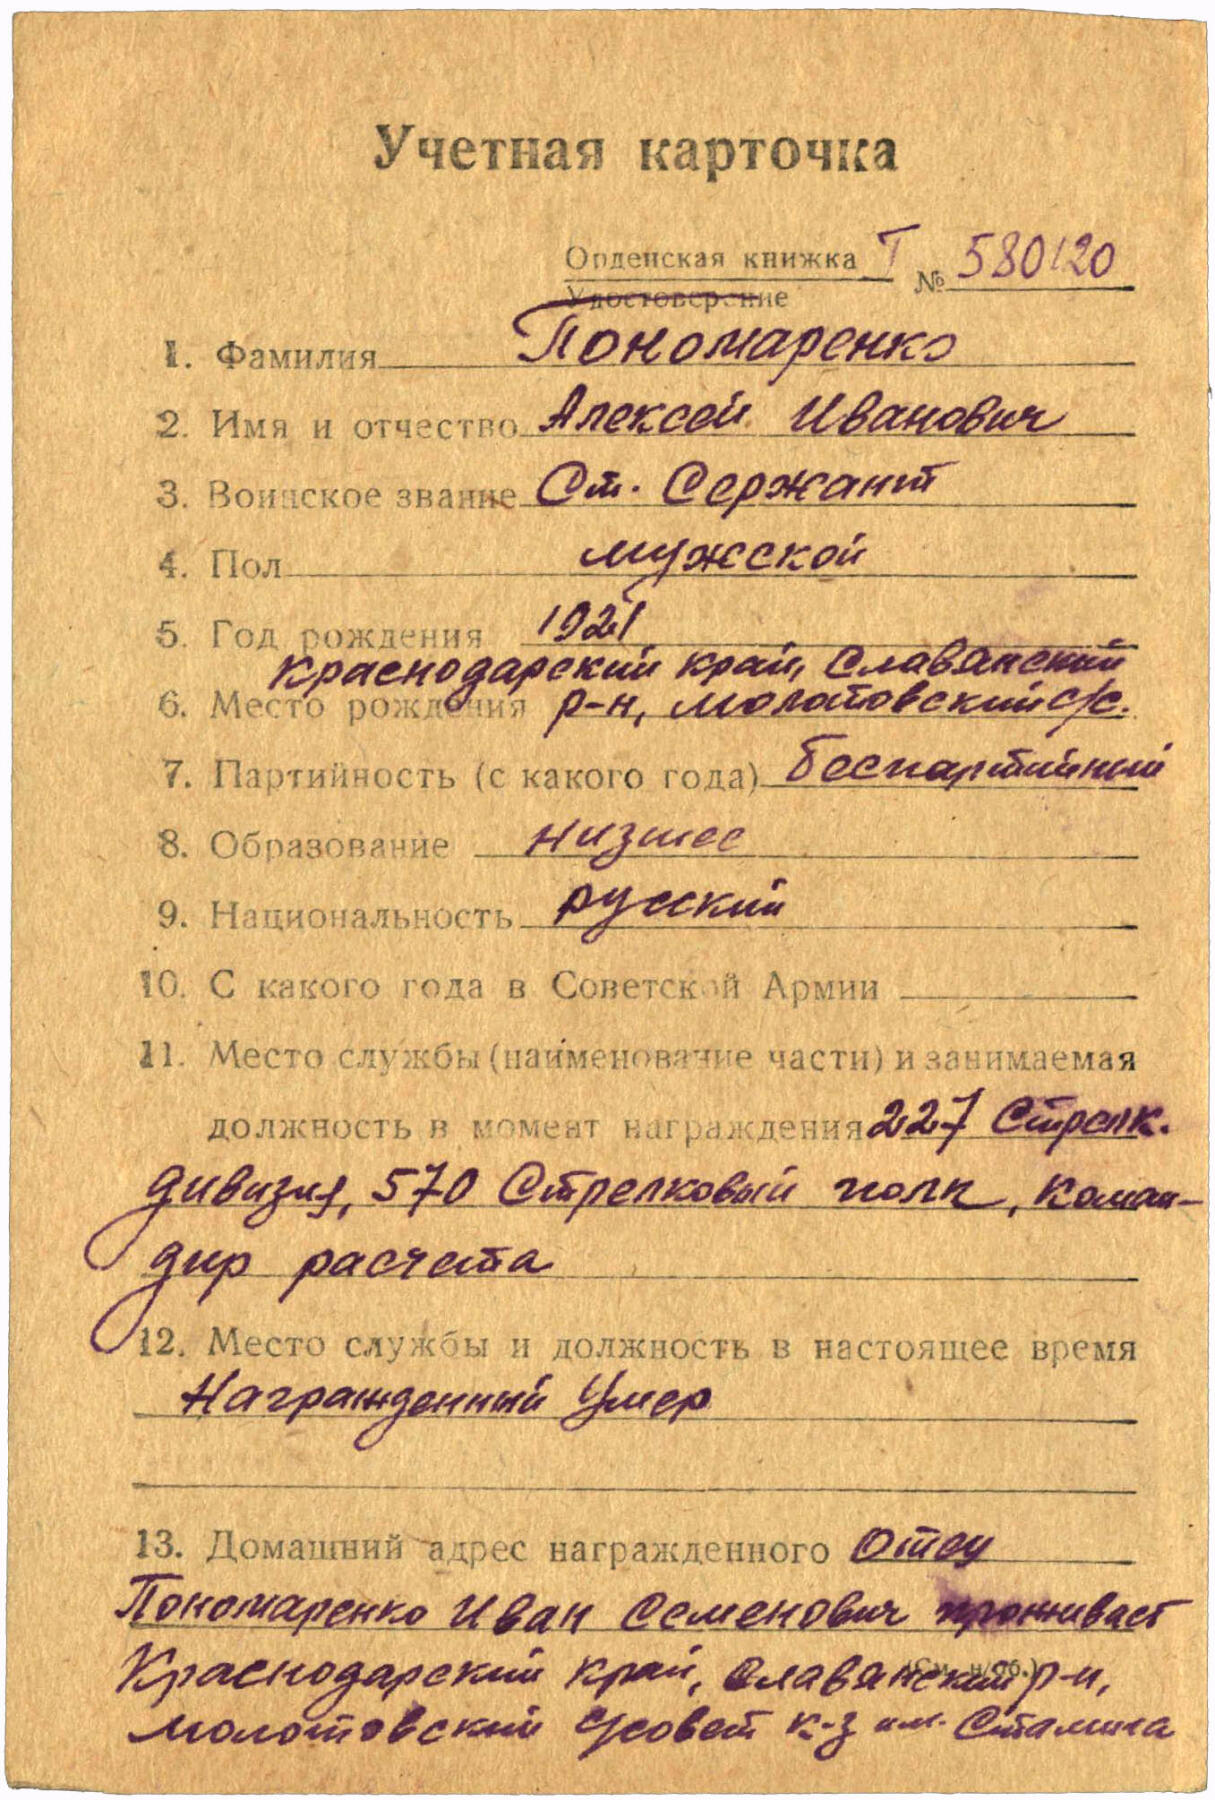 Учетная карточка
Орденская книжка Т № 580120
Удостоверение
1. Фамилия Пономаренко
2. Имя и отчество Алексей Иванович
3. Воинское звание Ст. Сержант
4. Пол мужской
5. Год рождения 1921
Краснодарский край, Славянский
6. Место рождения р-н, Молотовский с/с.
7. Партийность (с какого года) беспартийный
8. Образование низшее
9. Национальность русский
10. С какого года в Советской Армии
11. Место службы (наименование части) и занимаемая
должность в момент награждения 227 Стрелк.
дивизия, 570 Стрелковый полк, коман-
дир расчета
12. Место службы и должность в настоящее время
Награжденный Умер
13. Домашний адрес награжденного Отец
Пономаренко Иван Семенович проживает
(См. н/об.)
Краснодарский край, Славянский р-н,
Молотовский с/совет к-з им. Сталина